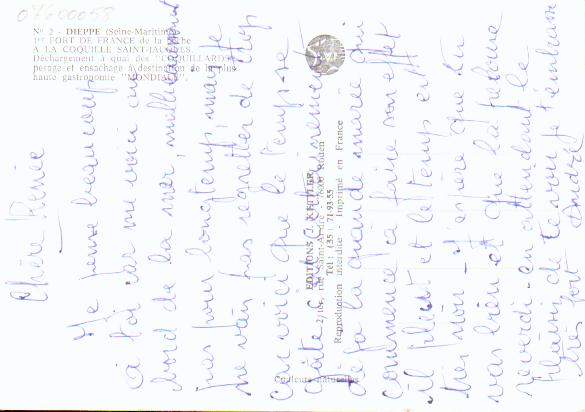 07600058
N° 2 - DIEPPE (Seine-Maritime)
1er PORT DE FRANCE de la pêche
A LA COQUILLE SAINT-JACQUES.
Déchargement à quai des "COQUILLARDS"
pesage et ensachage à destination de la plus
haute gastronomie "MONDIALE".
EDITIONS J. KETTLER
2 ter, rue Saint-André - 76000 Rouen
Tél : (35) 71-93-55
Reproduction interdite - Imprimé en France
Couleurs naturelles
Chère Renée
Je pense beaucoup
à toi car me voici au
bord de la mer, malheureusement
pas pour longtemps, mais
je ne vais pas regretter de trop
car voici que le temps se
gâte
déjà la grande marée qui
commence à faire son effet
il pleut et le temps est
très noir - J'espère que tu
vas bien et que la jambe
reverdi - en attendant le
plaisir de te voir je t'embrasse
très fort
André